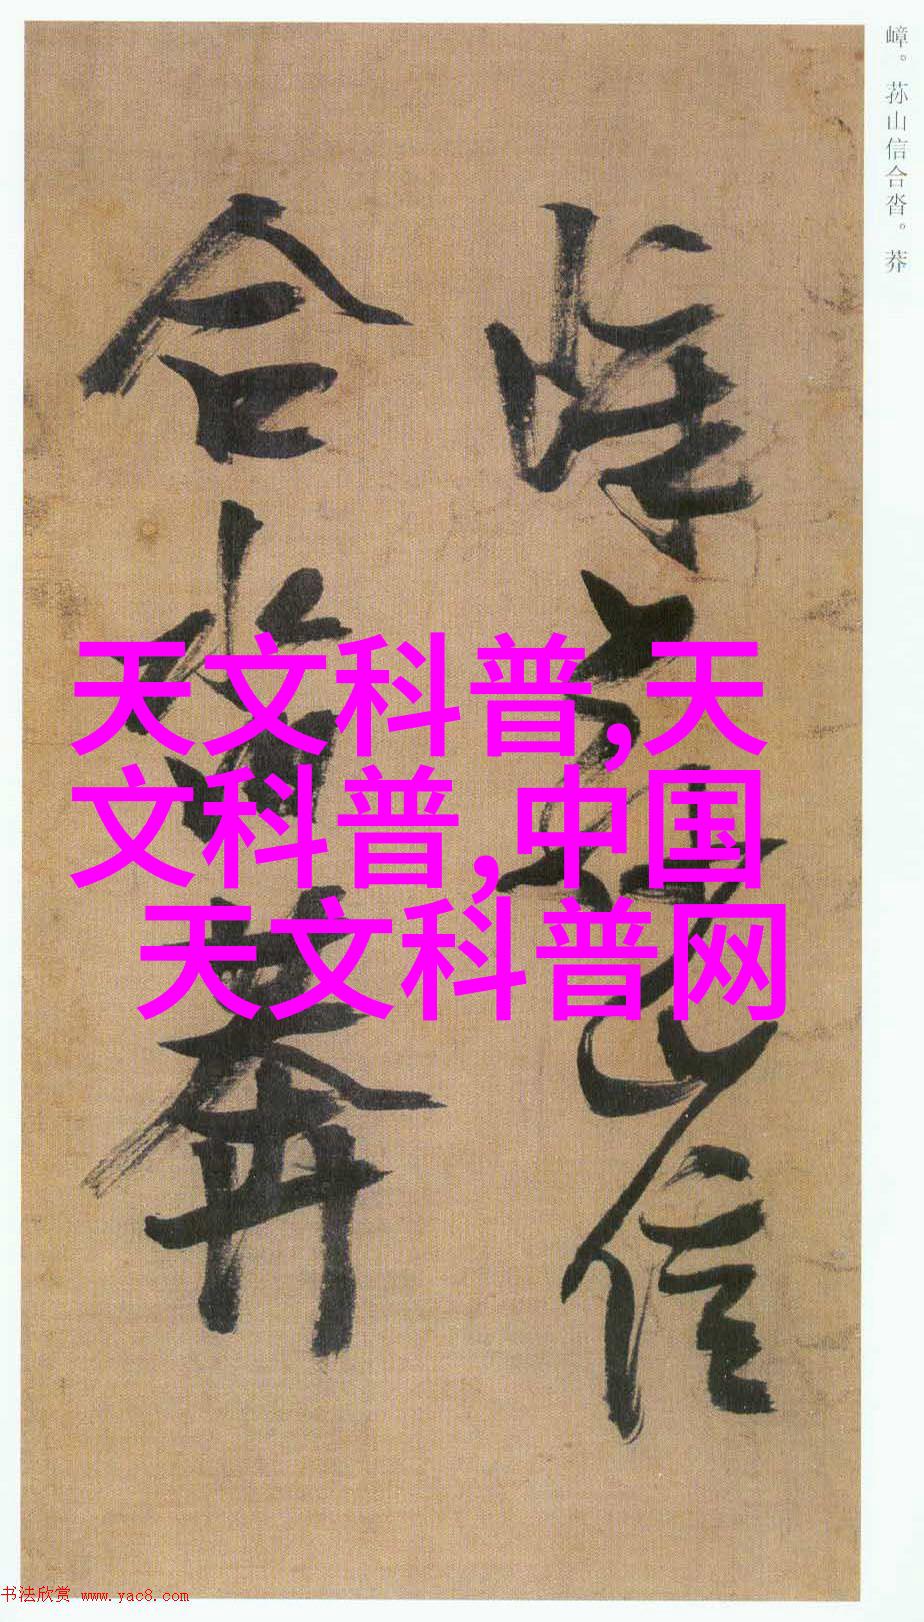 嶂。荪山信合沓。莽
嶂荪山信
合沓莽
天文科普,天
文科普,中国
天文科普网
书法欣赏 www.yac8.com